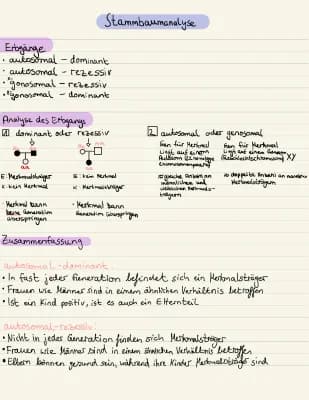 Stammbaumanalyse
Erbgänge
• autosomal - dominant
• autosomal - rezessiv
• gonosomal - rezessiv
• gonosomal - dominant
Analyse des Erbgangs
1 dominant oder rezessiv
2 autosomal oder genosomal
Gen für Merkmal
liegt auf einem
Gen für Merkmal
liegt auf einem
XY
E: Merkmalsträger
K: kein Merkmal
E: kein Merkmal
K: Merkmalsträger
• Merkmal kann
keine Generation
überspringen
• Merkmal kann
Generation überspringen
Zusammenfassung
autosomal-dominant
• In fast jeder Generation befindet sich ein Merkmalsträger
• Frauen wie Männer sind in einem ähnlichen Verhältnis betroffen
• Ist ein Kind positiv, ist es auch ein Elternteil
autosomal-rezessiv
• Nicht in jeder Generation finden sich Merkmalsträger
• Frauen wie Männer sind in einem ähnlichen Verhältnis betroffen
• Eltern können gesund sein, während ihre Kinder Merkmalsträger sind